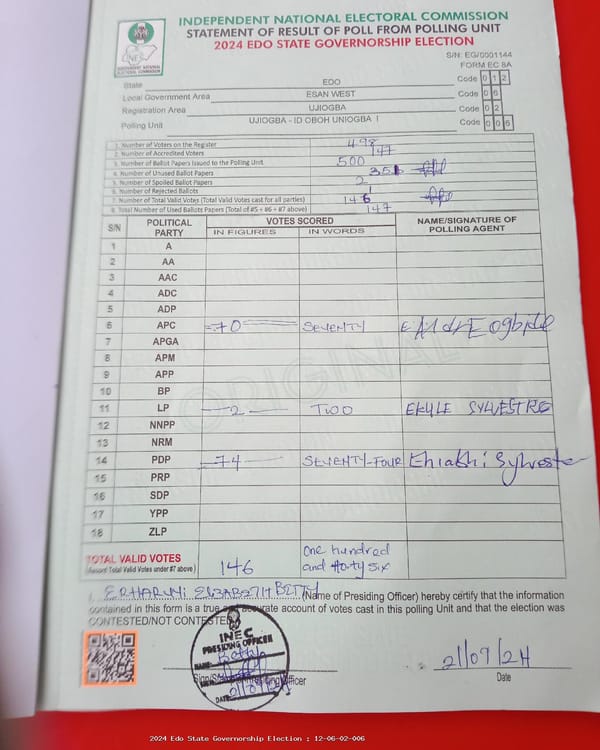 INDEPENDENT NATIONAL ELECTORAL COMMISSION
STATEMENT OF RESULT OF POLL FROM POLLING UNIT
2024 EDO STATE GOVERNORSHIP ELECTION
S/N: EG/0001144
FORM EC 8A
State EDO Code 0 1 2
Local Government Area ESAN WEST Code 0 6
Registration Area UJIOGBA Code 0 2
Polling Unit UJIOGBA - ID OBOH UNIOGBA I Code 0 0 6
1. Number of Voters on the Register 498
2. Number of Accredited Voters 147
3. Number of Ballot Papers Issued to the Polling Unit 500
4. Number of Unused Ballot Papers 351
5. Number of Spoiled Ballot Papers 2
6. Number of Rejected Ballots 1
7. Number of Total Valid Votes (Total Valid Votes cast for all parties) 146
8. Total Number of Used Ballots Papers (Total of #5 + #6 + #7 above) 147
S/N POLITICAL PARTY VOTES SCORED NAME/SIGNATURE OF POLLING AGENT
IN FIGURES IN WORDS
1 A
2 AA
3 AAC
4 ADC
5 ADP
6 APC 70 SEVENTY
7 APGA
8 APM
9 APP
10 BP
11 LP 2 TWO EKULE SYLVESTRE
12 NNPP
13 NRM
14 PDP 74 SEVENTY-FOUR Ehiakhi Sylvester
15 PRP
16 SDP
17 YPP
18 ZLP
ORIGINAL
TOTAL VALID VOTES
(Record Total Valid Votes under #7 above) 146 One hundred and forty six
I, BETTY (Name of Presiding Officer) hereby certify that the information
contained in this form is a true and accurate account of votes cast in this polling Unit and that the election was
CONTESTED/NOT CONTESTED
INEC
PRESIDING OFFICER
NAME: Betty
DATE: 21/09/24
Officer
21/09/24
Date
2024 Edo State Governorship Election : 12-06-02-006